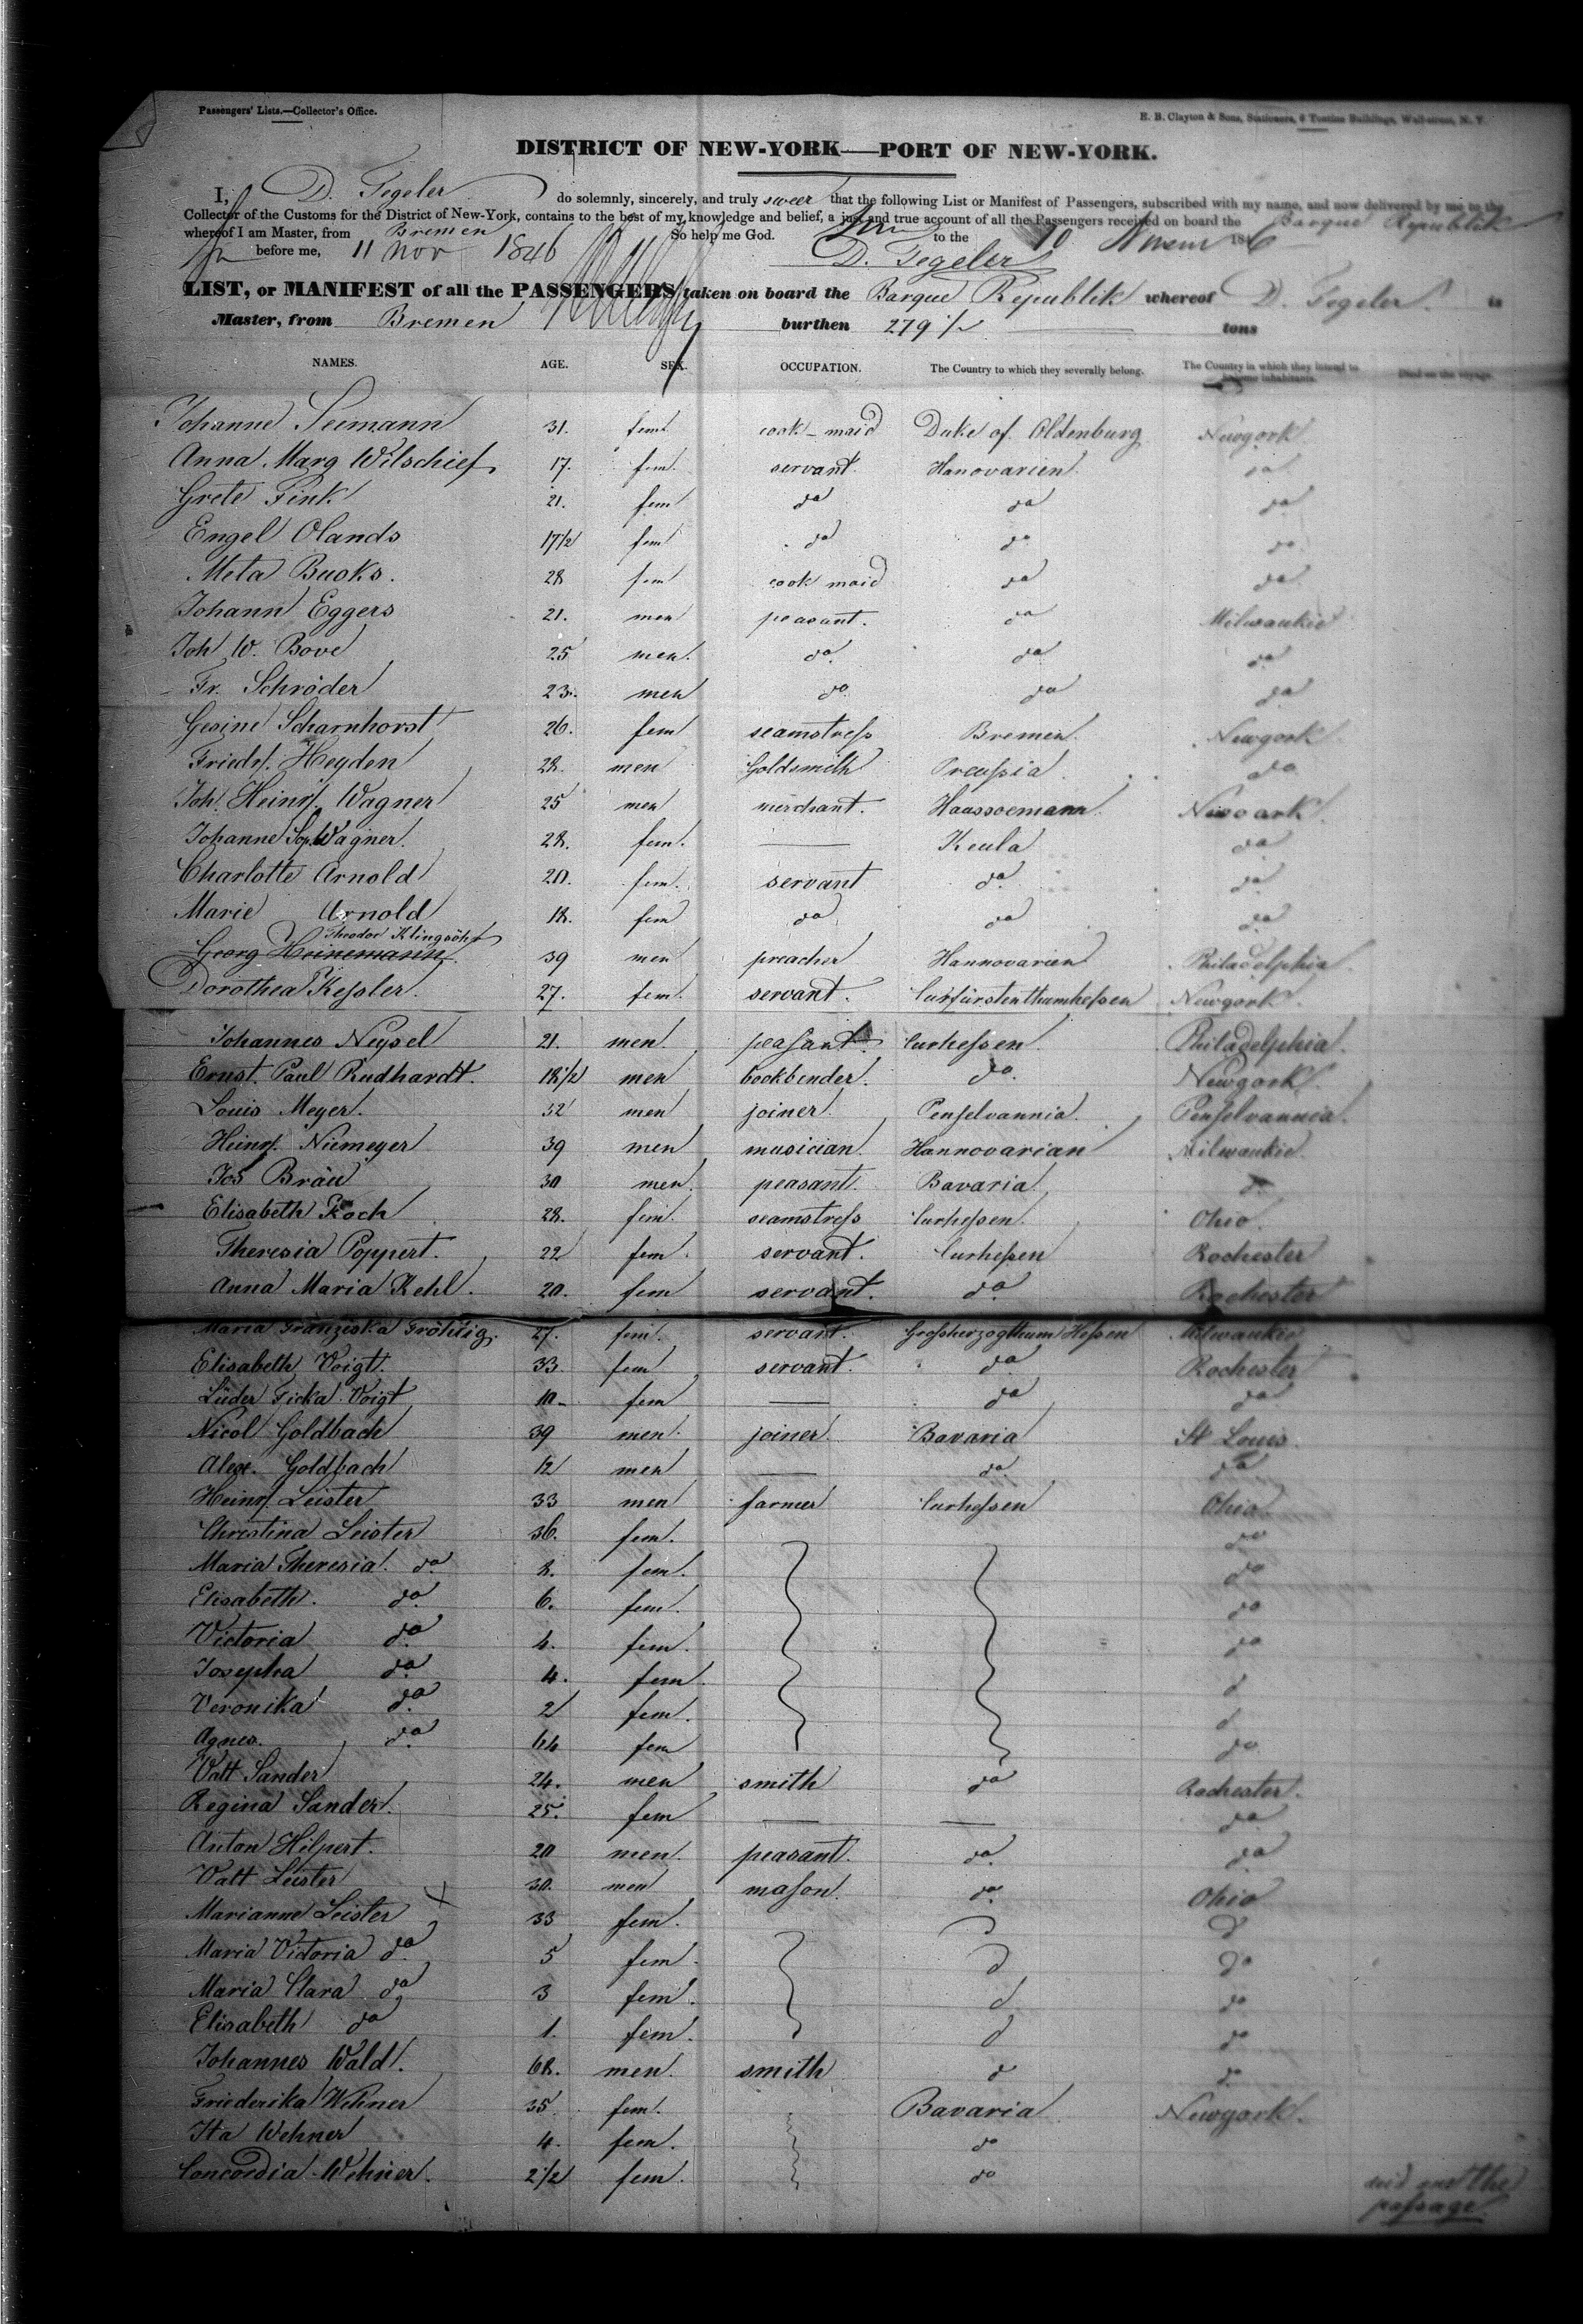 Passengers' Lists.—Collector's Office.
E. B. Clayton & Sons, Stationers, 6 Tontine Buildings, Wall-street, N. Y.
DISTRICT OF NEW-YORK—PORT OF NEW-YORK.
I, D. Tegeler do solemnly, sincerely, and truly sweer that the following List or Manifest of Passengers, subscribed with my name, and now delivered by me to the
Collector of the Customs for the District of New-York, contains to the best of my knowledge and belief, a just and true account of all the Passengers received on board the Barque Republik
whereof I am Master, from Bremen So help me God. to the 10
before me, 11 Nov 1846 D. Tegeler
LIST, or MANIFEST of all the PASSENGERS taken on board the Barque Republik whereof D. Tegeler is
Master, from Bremen burthen 279 1/2 tons
NAMES. AGE. SEX. OCCUPATION. The Country to which they severally belong. The Country in which they intend to become inhabitants. Died on the voyage.
Johanne Seemann 31. fem. cook-maid Duke of Oldenburg Newyork
Anna Marg Wilschief 17. fem. servant. Hanovarien do
Grete Fink 21. fem do do do
Engel Olands 17 1/2 fem do do do
Meta Bucks. 28 fem cook maid do do
Johann Eggers 21. men peasant. do Milwaukie
Joh W. Bove 25 men. do. do do
Fr. Schröder 23. men do do do
Gesine Scharnhorst 26. fem seamstress Bremen. Newyork
Friedr. Heyden 28. men Goldsmith Preussia do
Joh. Heinr. Wagner 25 men merchant. Haassoemann Newark
Johanne Sop. Wagner. 28. fem. — Keula do
Charlotte Arnold 20. fem. servant do. do
Marie Arnold 18. fem do do do
Theodor Klingsöhr
Georg Heinemann 39 men preacher Hannovarien Philadelphia.
Dorothea Kessler. 27. fem. servant. Curfürstenthumhessen Newyork.
Johannes Neysel 21. men. peasant. Curhessen. Philadelphia.
Ernst. Paul Rudhardt. 18 1/2 men bookbender. do. Newyork.
Louis Meyer. 32 men joiner. Penselvannia. Penselvannia.
Heinr. Niemeyer 39 men musician. Hannovarian Milwaukie
Jos Bräu 30 men. peasant. Bavaria do
Elisabeth Koch 28. fem. seamstress Curhessen. Ohio.
Theresia Poppert. 22 fem. servant. Curhessen Rochester
Anna Maria Kehl. 20. fem servant. do. Rochester
Maria Franziska Fröhlig. 27. fem. servant. Grosherzogthum Hessen Milwaukie
Elisabeth Voigt. 33. fem servant. do Rochester
Lüder Ticka Voigt 10- fem — do do
Nicol Goldbach 39 men. joiner. Bavaria St Louis.
Alex. Goldbach 12 men — do. do
Heinr. Leister 33 men farmer Curhessen Ohio
Christina Leister 36. fem. do
Maria Theresia. do. 8. fem. do
Elisabeth. do. 6. fem. do
Victoria do. 4. fem. do
Josepha do. 4. fem. d
Veronika do. 2 fem. d
Agnes. do. 64 fem do
Vatt Sander 24. men smith do Rochester.
Regina Sander. 25. fem — — do
Anton Hilpert. 20 men. peasant. do. do
Vatt Leister 30. men mason. do. Ohio
Marianne Leister 33 fem. d
Maria Victoria do. 5 fem. d do
Maria Clara do 3 fem. d do
Elisabeth do 1. fem. d do
Johannes Wald. 68. men. smith d do
Friederika Wehner 35 fem. Bavaria Newyork.
Ita Wehner 4. fem. do
Concordia Wehner. 2 1/2 fem. do died on the
passage